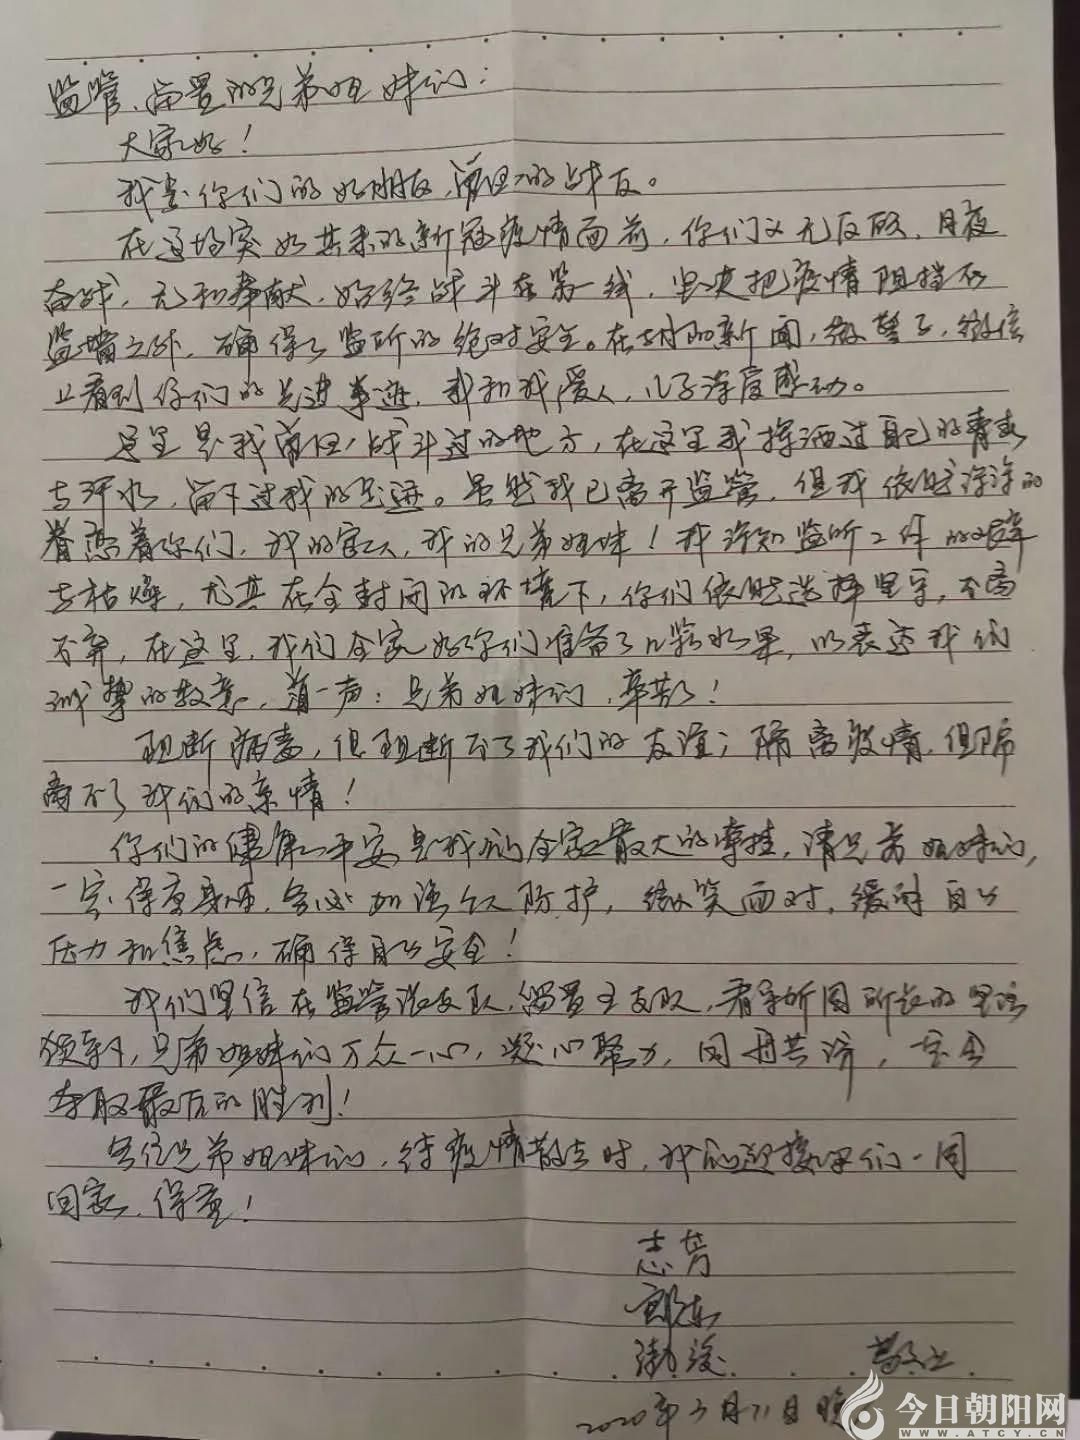 监管、留置的兄弟姐妹们：
大家好！
我是你们的好朋友，曾经的战友。
在这场突如其来的新冠疫情面前，你们义无反顾，日夜
奋战，无私奉献，始终战斗在第一线，坚决把疫情阻挡在
监墙之外，确保了监所的绝对安全。在的新闻，微信
上看到你们的先进事迹，我和我爱人，儿子深度感动。
这里是我曾经战斗过的地方，在这里我挥洒过自己的青春
与汗水，留下过我的足迹。虽然我已离开监管，但我依然深深的
眷恋着你们，我的家人，我的兄弟姐妹！我深知监所工作的艰辛
与枯燥，尤其在全封闭的环境下，你们依然选择坚守，不离
不弃，在这里，我们全家给你们准备了几箱水果，以表达我们
诚挚的敬意，道一声：兄弟姐妹们，辛苦了！
阻断病毒，但阻断不了我们的友谊；隔离疫情，但隔
离不了我们的亲情！
你们的健康平安是我们全家最大的牵挂，请兄弟姐妹们，
一定保重身体，务必加强个人防护，微笑面对，缓解自己
压力和焦虑，确保自己安全！
我们坚信在监管张支队，留置王支队，看守所周所长的坚强
领导下，兄弟姐妹们万众一心，凝心聚力，同舟共济，定会
夺取最后的胜利！
各位兄弟姐妹们，待疫情散去时，我们迎接你们一同
回家，保重！
志芳
敬上
2020年3月21日晚
今日朝阳网
WWW.ATCY.CN